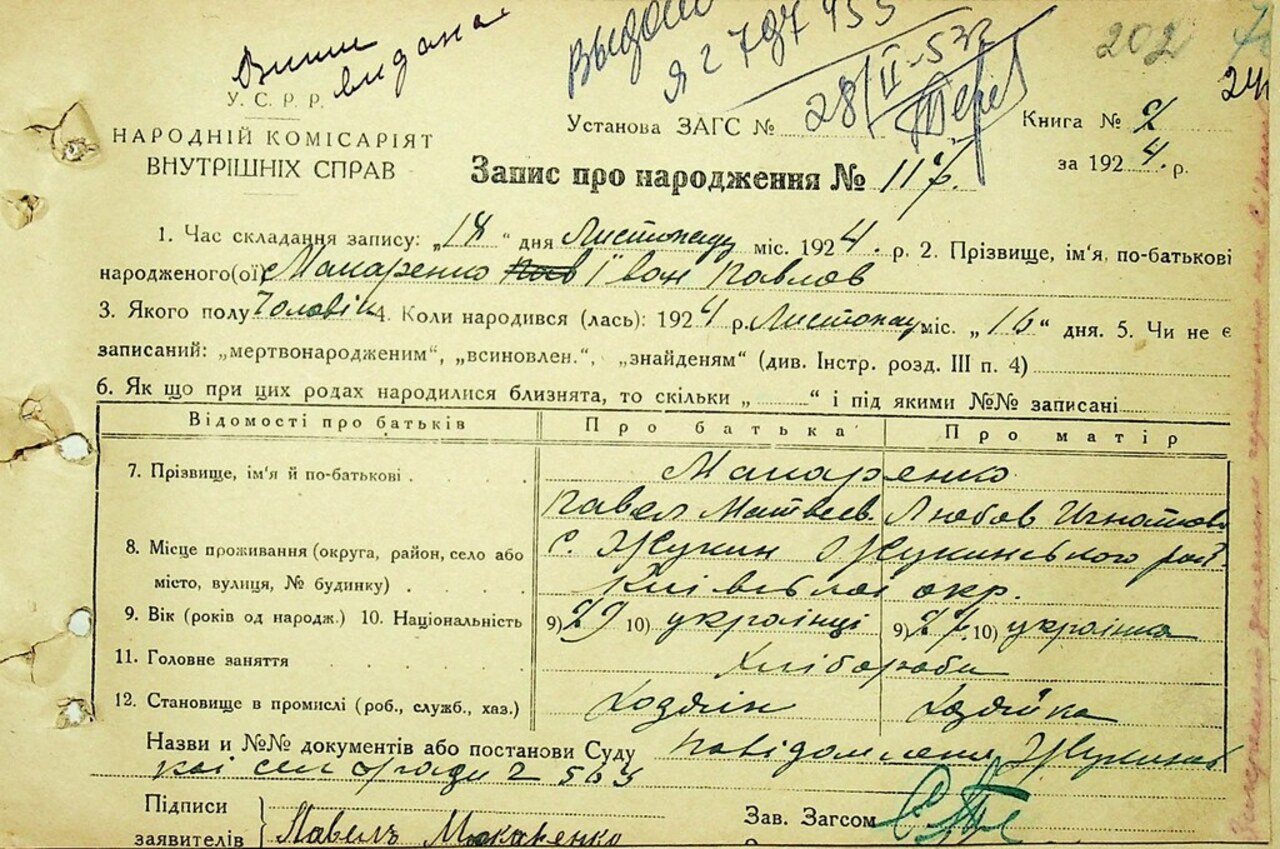 видана
Выдано
Я 2 707 453
28/II-53г
202
У. С. Р. Р.
НАРОДНІЙ КОМІСАРІЯТ
ВНУТРІШНІХ СПРАВ
Установа ЗАГС №
Книга № 2
за 1924 р.
Запис про народження № 117.
1. Час складання запису: „18“ дня Листопаду міс. 1924. р. 2. Прізвище, ім'я, по-батькові
народженого(ої) Макаренко Іван Павлов
3. Якого полу Чоловік 4. Коли народився (лась): 1924 р. Листопау міс. „16“ дня. 5. Чи не є
записаний: „мертвонародженим“, „всиновлен.“, „знайденям“ (див. Інстр. розд. III п. 4)
6. Як що при цих родах народилися близнята, то скільки „ “ і під якими №№ записані
Відомості про батьків Про батька Про матір
7. Прізвище, ім'я й по-батькові Макаренко
Павел Матвеев Любов Игнатова
8. Місце проживання (округа, район, село або с. Жукин Жукинського рай.
місто, вулиця, № будинку) Київської окр.
9. Вік (років од народж.) 10. Національність 9) 29 10) українці 9) 27. 10) українка
11. Головне заняття Хлібороби
12. Становище в промислі (роб., служб., хаз.) Хозяін Хозяйка
Назви и №№ документів або постанови Суду повідомлення Жукинс
кої сел ради 2 563
Підписи
заявителів Павелъ Макаренко
Зав. Загсом